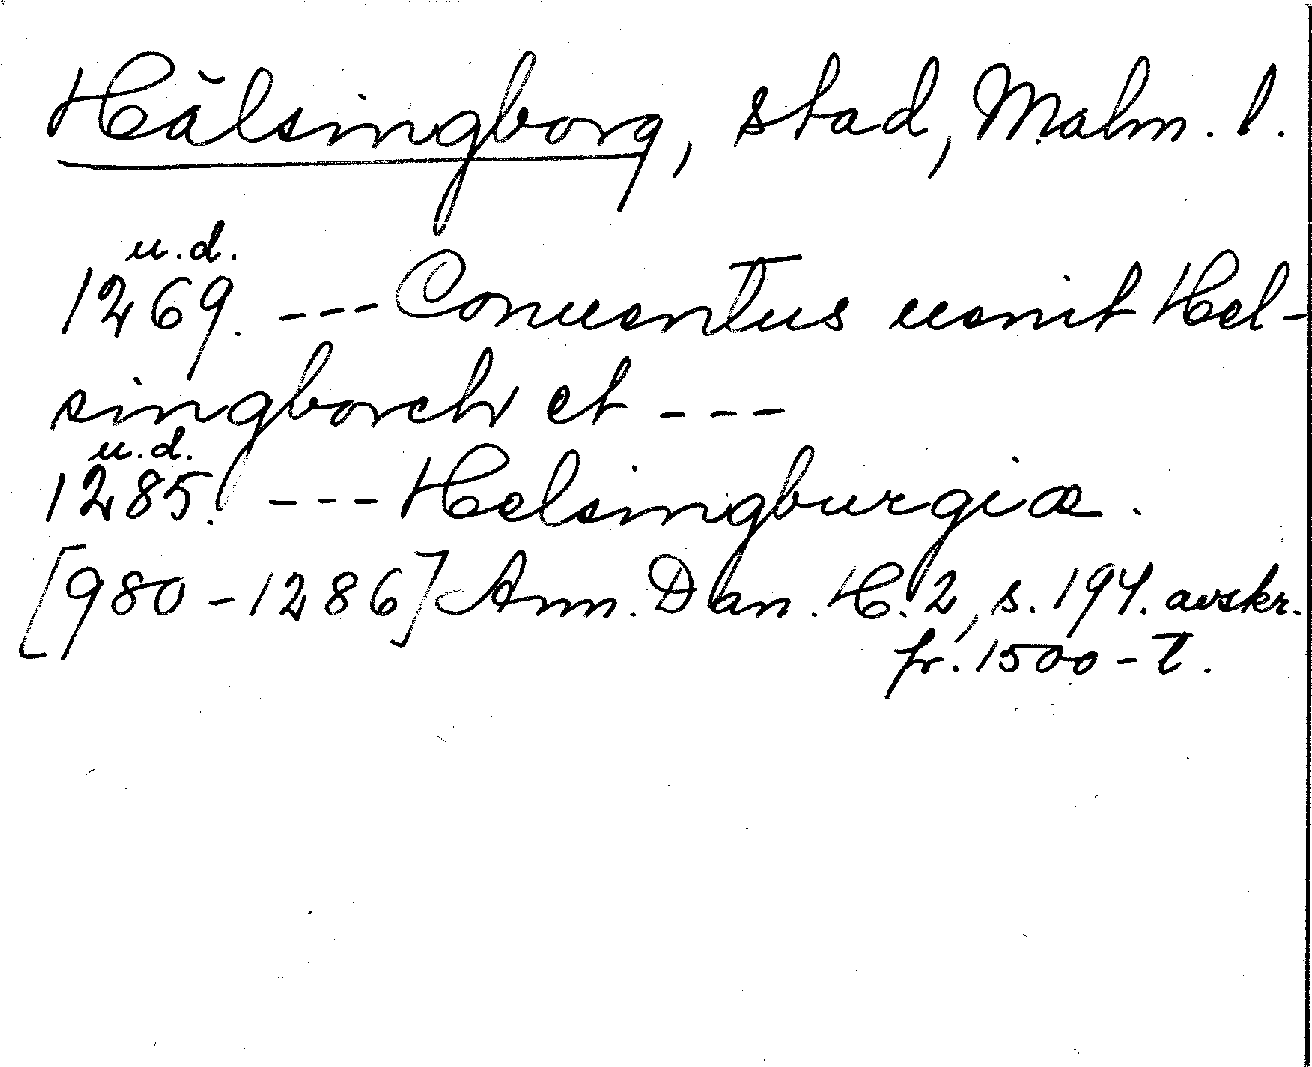 Hälsingborg, stad, Malm. l.
u.d.
1269. --- Conuentus uenit Hel-
singborch et ---
u.d.
1285. --- Helsingburgiæ.
[980-1286] Ann. Dan. H. 2, s. 194. avskr.
fr. 1500-t.